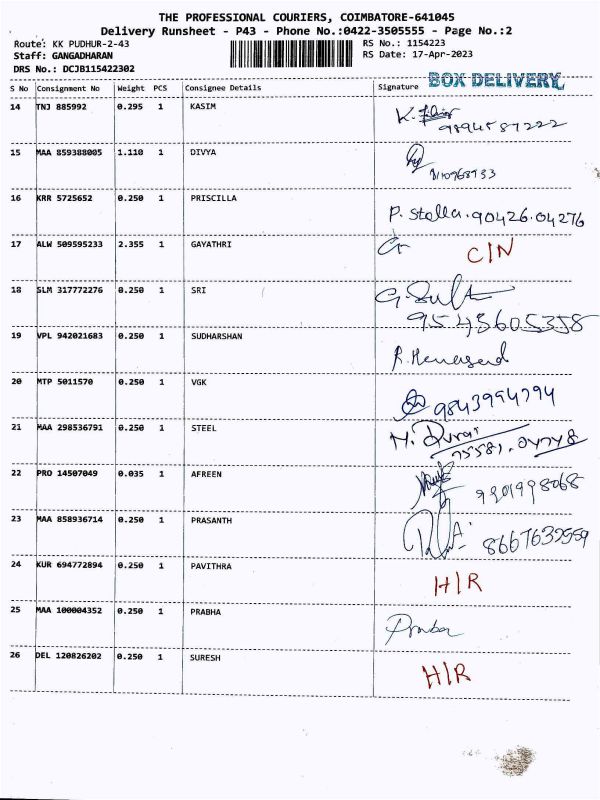 THE PROFESSIONAL COURIERS, COIMBATORE-641045
Delivery Runsheet - P43 - Phone No.:0422-3505555 - Page No.:2
Route: KK PUDHUR-2-43 RS No.: 1154223
Staff: GANGADHARAN RS Date: 17-Apr-2023
DRS No.: DCJB115422302
BOX DELIVERY
S No Consignment No Weight PCS Consignee Details Signature
14 TNJ 885992 0.295 1 KASIM K.
9894587222
15 MAA 859388005 1.110 1 DIVYA
16 KRR 5725652 0.250 1 PRISCILLA P. Stella. 90426.04276
17 ALW 509595233 2.355 1 GAYATHRI C/N
18 SLM 317772276 0.250 1 SRI
9543605358
19 VPL 942021683 0.250 1 SUDHARSHAN
20 MTP 5011570 0.250 1 VGK 9843994794
21 MAA 298536791 0.250 1 STEEL
22 PRO 14507049 0.035 1 AFREEN
23 MAA 858936714 0.250 1 PRASANTH
24 KUR 694772894 0.250 1 PAVITHRA H/R
25 MAA 100004352 0.250 1 PRABHA Praba
26 DEL 120826202 0.250 1 SURESH H/R